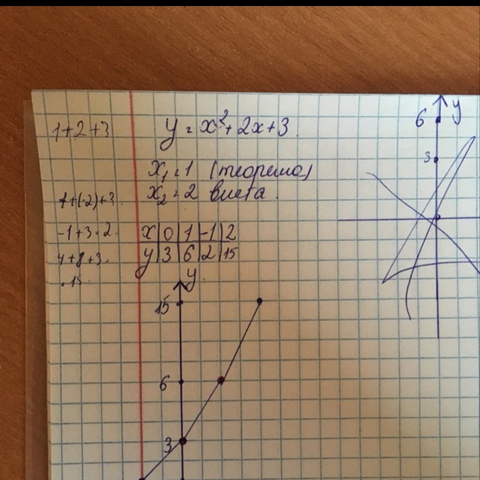 1+2+3
y = x²+2x+3.
x₁ = 1 (теорема)
x₂ = 2 виета.
1+(-2)+3.
-1+3=2.
x|0|1|-1|2
y|3|6|2|15
4+8+3.
15
y
15
6
3
y
6
3